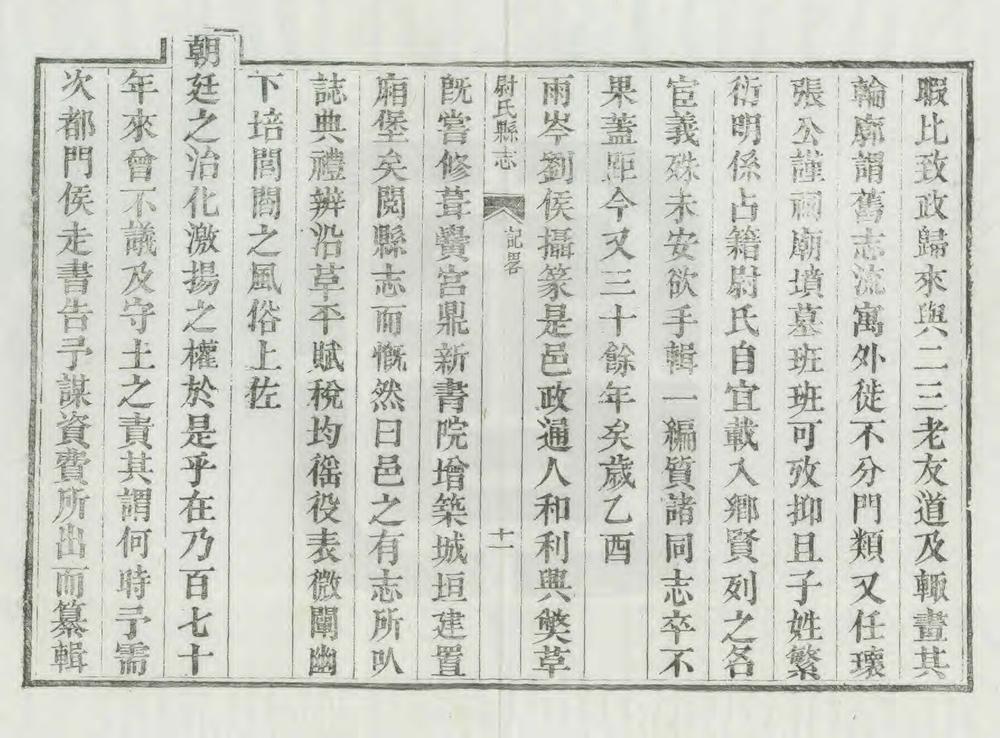 暇比致政歸來與二三老友道及輙畫其
輪廓謂舊志流寓外徙不分門類又任瓌
張公謹祠廟墳墓班班可攷抑且子姓繁
衍明係占籍尉氏自宜載入鄉賢列之名
宦義殊未安欲手輯一編質諸同志卒不
果蓋距今又三十餘年矣歲乙酉
雨岑劉侯攝篆是邑政通人和利興獘革
尉氏縣志
記畧
十一
旣嘗修葺黌宮鼎新書院增築城垣建置
廂堡矣閱縣志而慨然曰邑之有志所㕥
誌典禮辨沿革平賦稅均徭役表微闡幽
下培閭閻之風俗上佐
朝廷之治化激揚之權於是乎在乃百七十
年來曾不議及守土之責其謂何時予需
次都門侯走書告予謀資費所出而纂輯